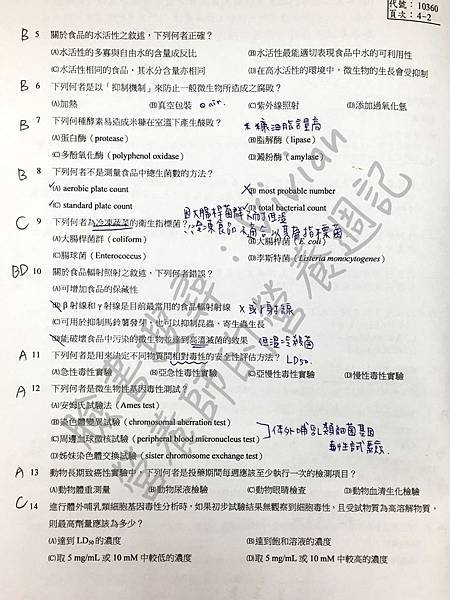 代號：10360
頁次：4-2
B 5 關於食品的水活性之敘述，下列何者正確？
(A)水活性的多寡與自由水的含量成反比 (B)水活性最能適切表現食品中水的可利用性
(C)水活性相同的食品，其水分含量亦相同 (D)在高水活性的環境中，微生物的生長會受抑制
B 6 下列何者是以「抑制機制」來防止一般微生物所造成之腐敗？
(A)加熱 (B)真空包裝 (C)紫外線照射 (D)添加過氧化氫
B 7 下列何種酵素易造成米糠在室溫下產生酸敗？ 米糠油脂含量高
(A)蛋白酶（protease） (B)脂解酶（lipase）
(C)多酚氧化酶（polyphenol oxidase） (D)澱粉酶（amylase）
B 8 下列何者不是測量食品中總生菌數的方法？
(A) aerobic plate count (B) most probable number
(C) standard plate count (D) total bacterial count
因大腸桿菌群不耐低溫
C 9 下列何者為冷凍蔬菜的衛生指標菌？ 冷凍食品不適合以其為指標菌
(A)大腸桿菌群（coliform） (B)大腸桿菌（E. coli）
(C)腸球菌（Enterococcus） (D)李斯特菌（Listeria monocytogenes）
BD 10 關於食品輻射照射之敘述，下列何者錯誤？
(A)可增加食品的保藏性
(B)β射線和γ射線是目前最常用的食品輻射射線 X或γ射線
(C)可用於抑制馬鈴薯發芽，也可以抑制昆蟲、寄生蟲生長
(D)能破壞食品中污染的微生物達到高溫滅菌的效果 但溫冷殺菌
A 11 下列何者是用來決定不同物質間相對毒性的安全性評估方法？ LD50
(A)急性毒性實驗 (B)亞急性毒性實驗 (C)亞慢性毒性實驗 (D)慢性毒性實驗
A 12 下列何者是微生物性基因毒性測試？
(A)安姆氏試驗法（Ames test）
(B)染色體變異試驗（chromosomal aberration test）
(C)周邊血球微核試驗（peripheral blood micronucleus test） 體外哺乳類細菌基因
(D)姊妹染色體交換試驗（sister chromosome exchange test） 毒性試驗
A 13 動物長期致癌性實驗中，下列何者是投藥期間每週應該至少執行一次的檢測項目？
(A)動物體重測量 (B)動物尿液檢驗 (C)動物眼睛檢查 (D)動物血清生化檢驗
C 14 進行體外哺乳類細胞基因毒性分析時，如果初步試驗結果無觀察到細胞毒性，且受試物質為高溶解物質，
則最高劑量應該為多少？
(A)達到 LD50 的濃度 (B)達到飽和溶液的濃度
(C)取 5 mg/mL 或 10 mM 中較低的濃度 (D)取 5 mg/mL 或 10 mM 中較高的濃度
臉書搜尋：Vivian營養師的營養週記